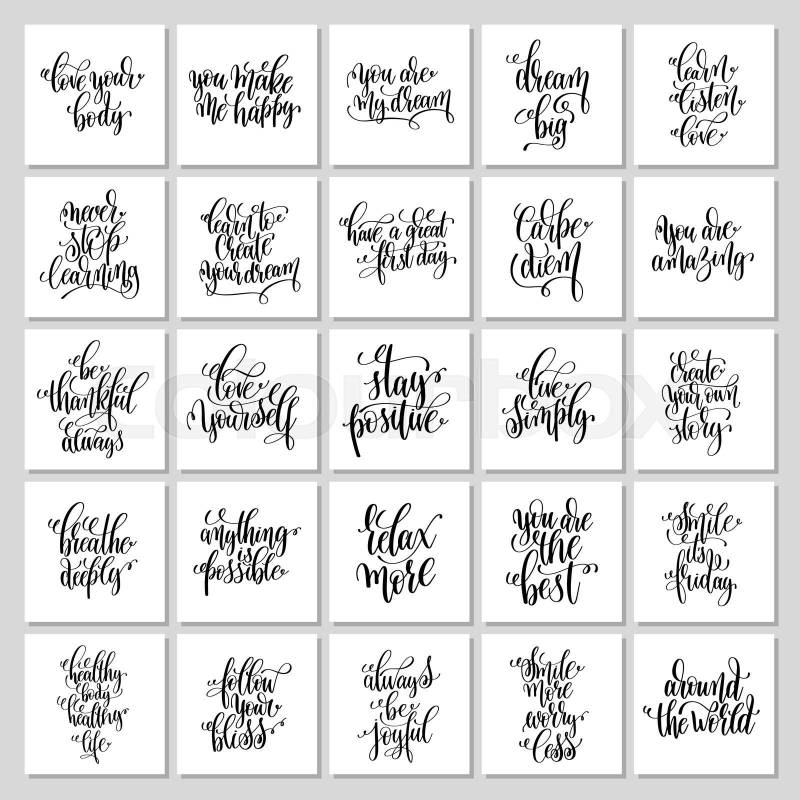 love your
body
you make
me happy
you are
my dream
dream
big
learn
listen
love
never
stop
learning
learn to
create
your dream
have a great
first day
Carpe
diem
you are
amazing
be
thankful
always
love
yourself
stay
positive
live
simply
create
your own
story
breathe
deeply
anything
is
possible
relax
more
you are
the
best
smile
it's
friday
healthy
body
healthy
life
follow
your
bliss
always
be
joyful
smile
more
worry
less
around
the world
colourbox